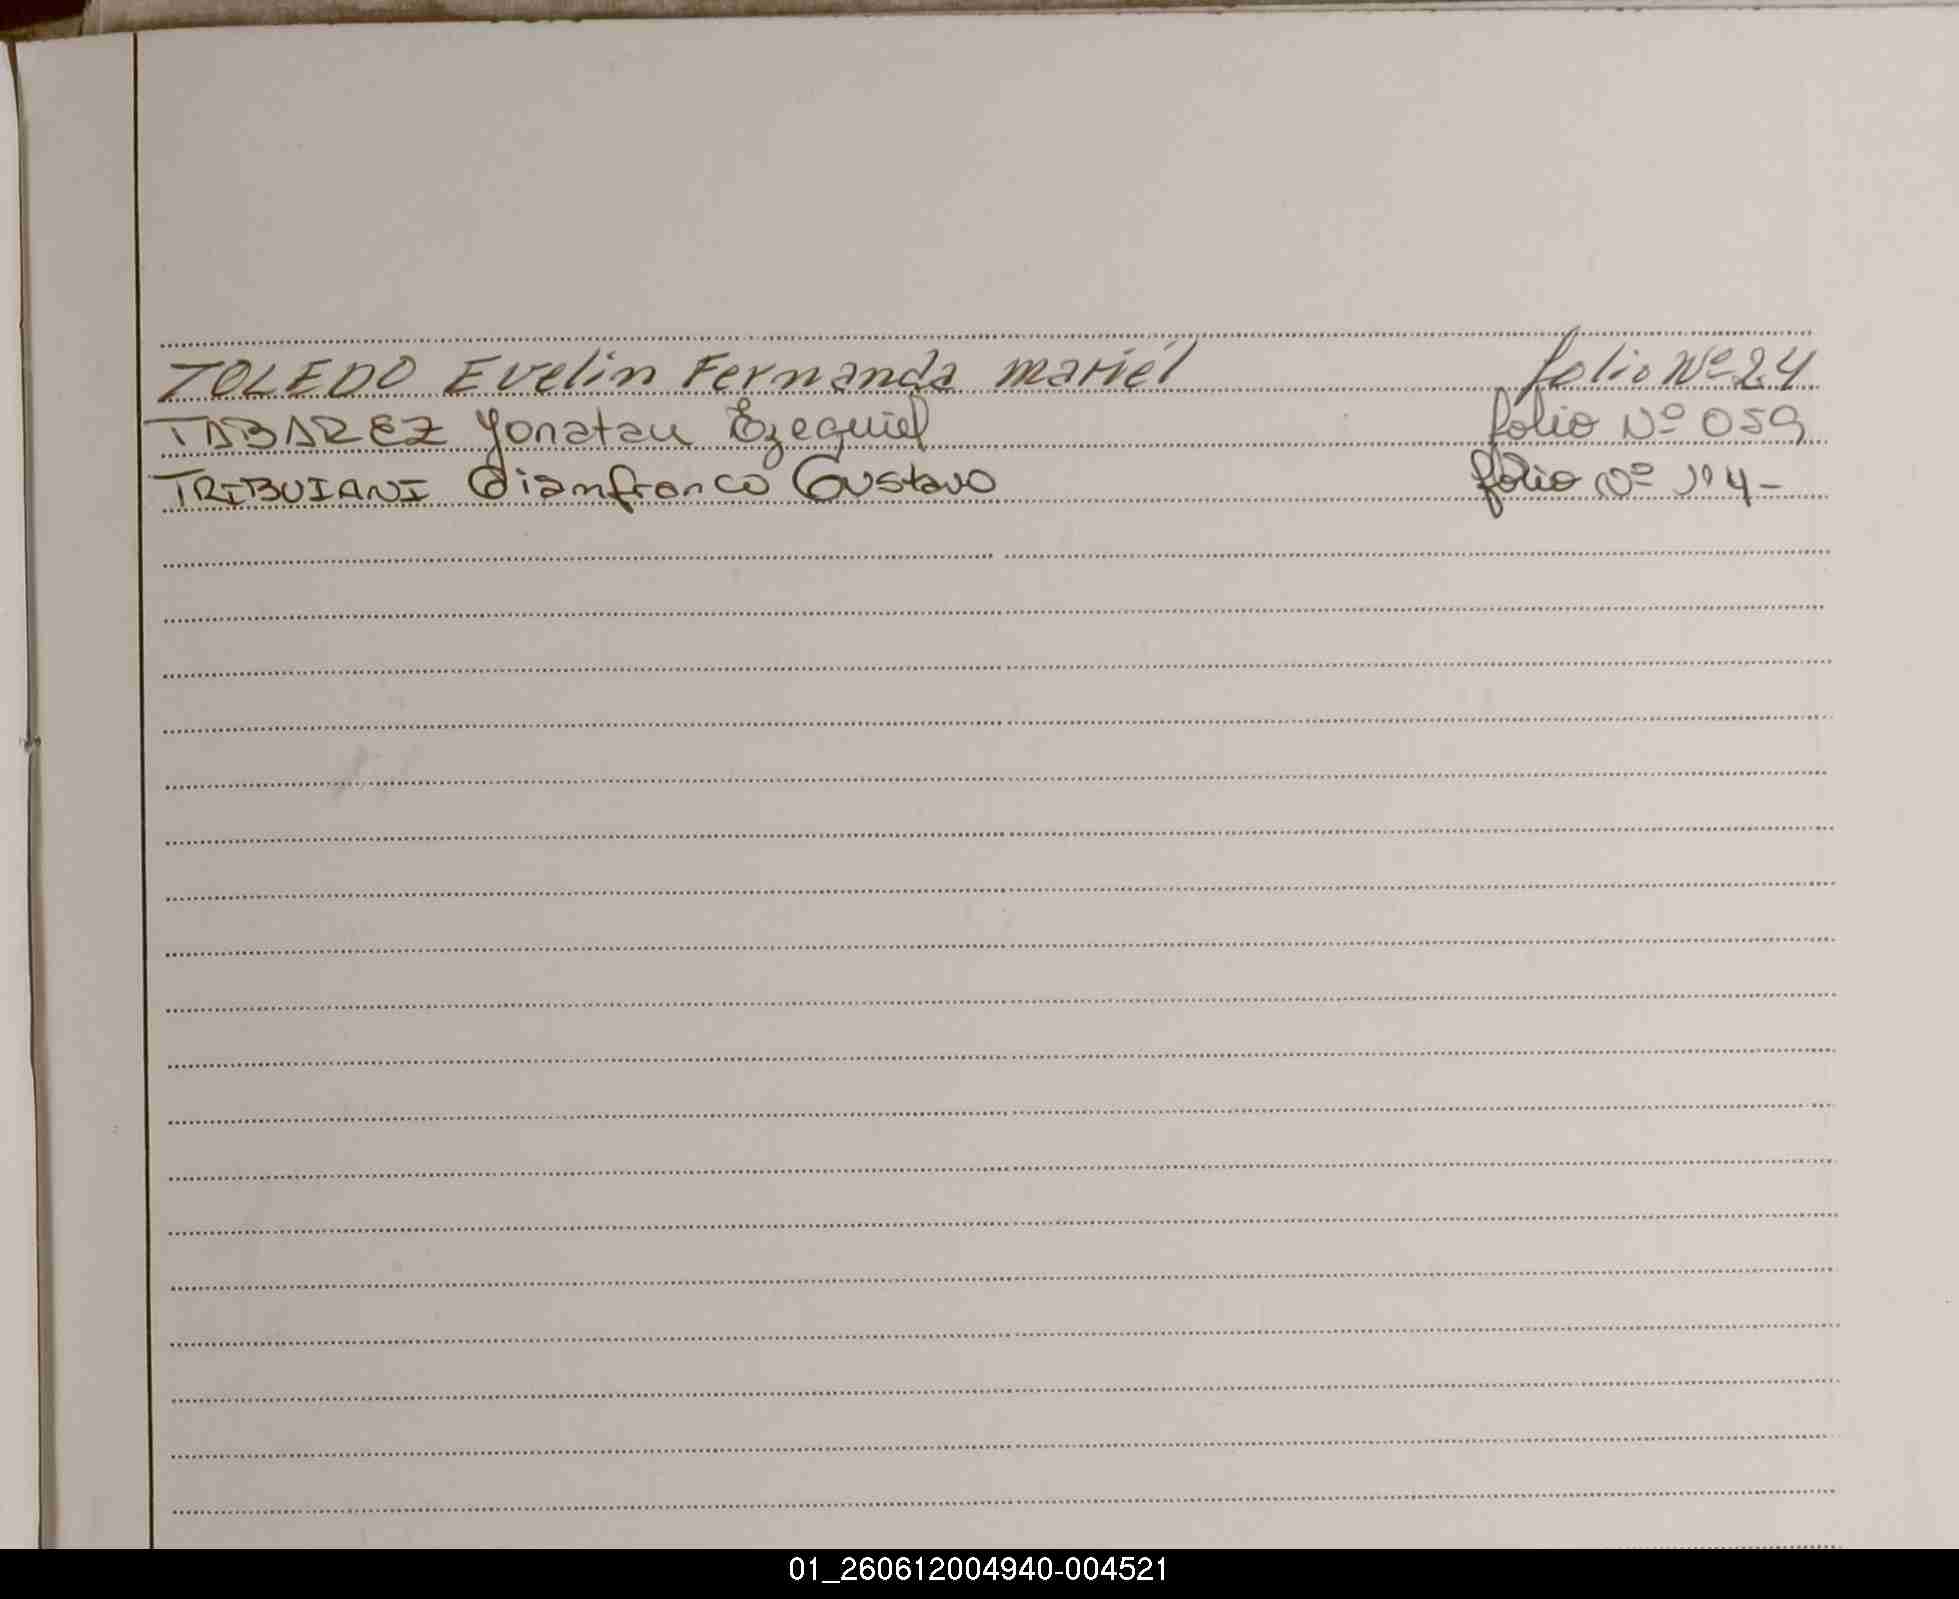 TOLEDO Evelin Fernanda Mariél folio Nº 24
TABAREZ Yonatan Ezequiel folio Nº 059
TRIBUIANI Gianfranco Gustavo folio Nº
01_260612004940-004521